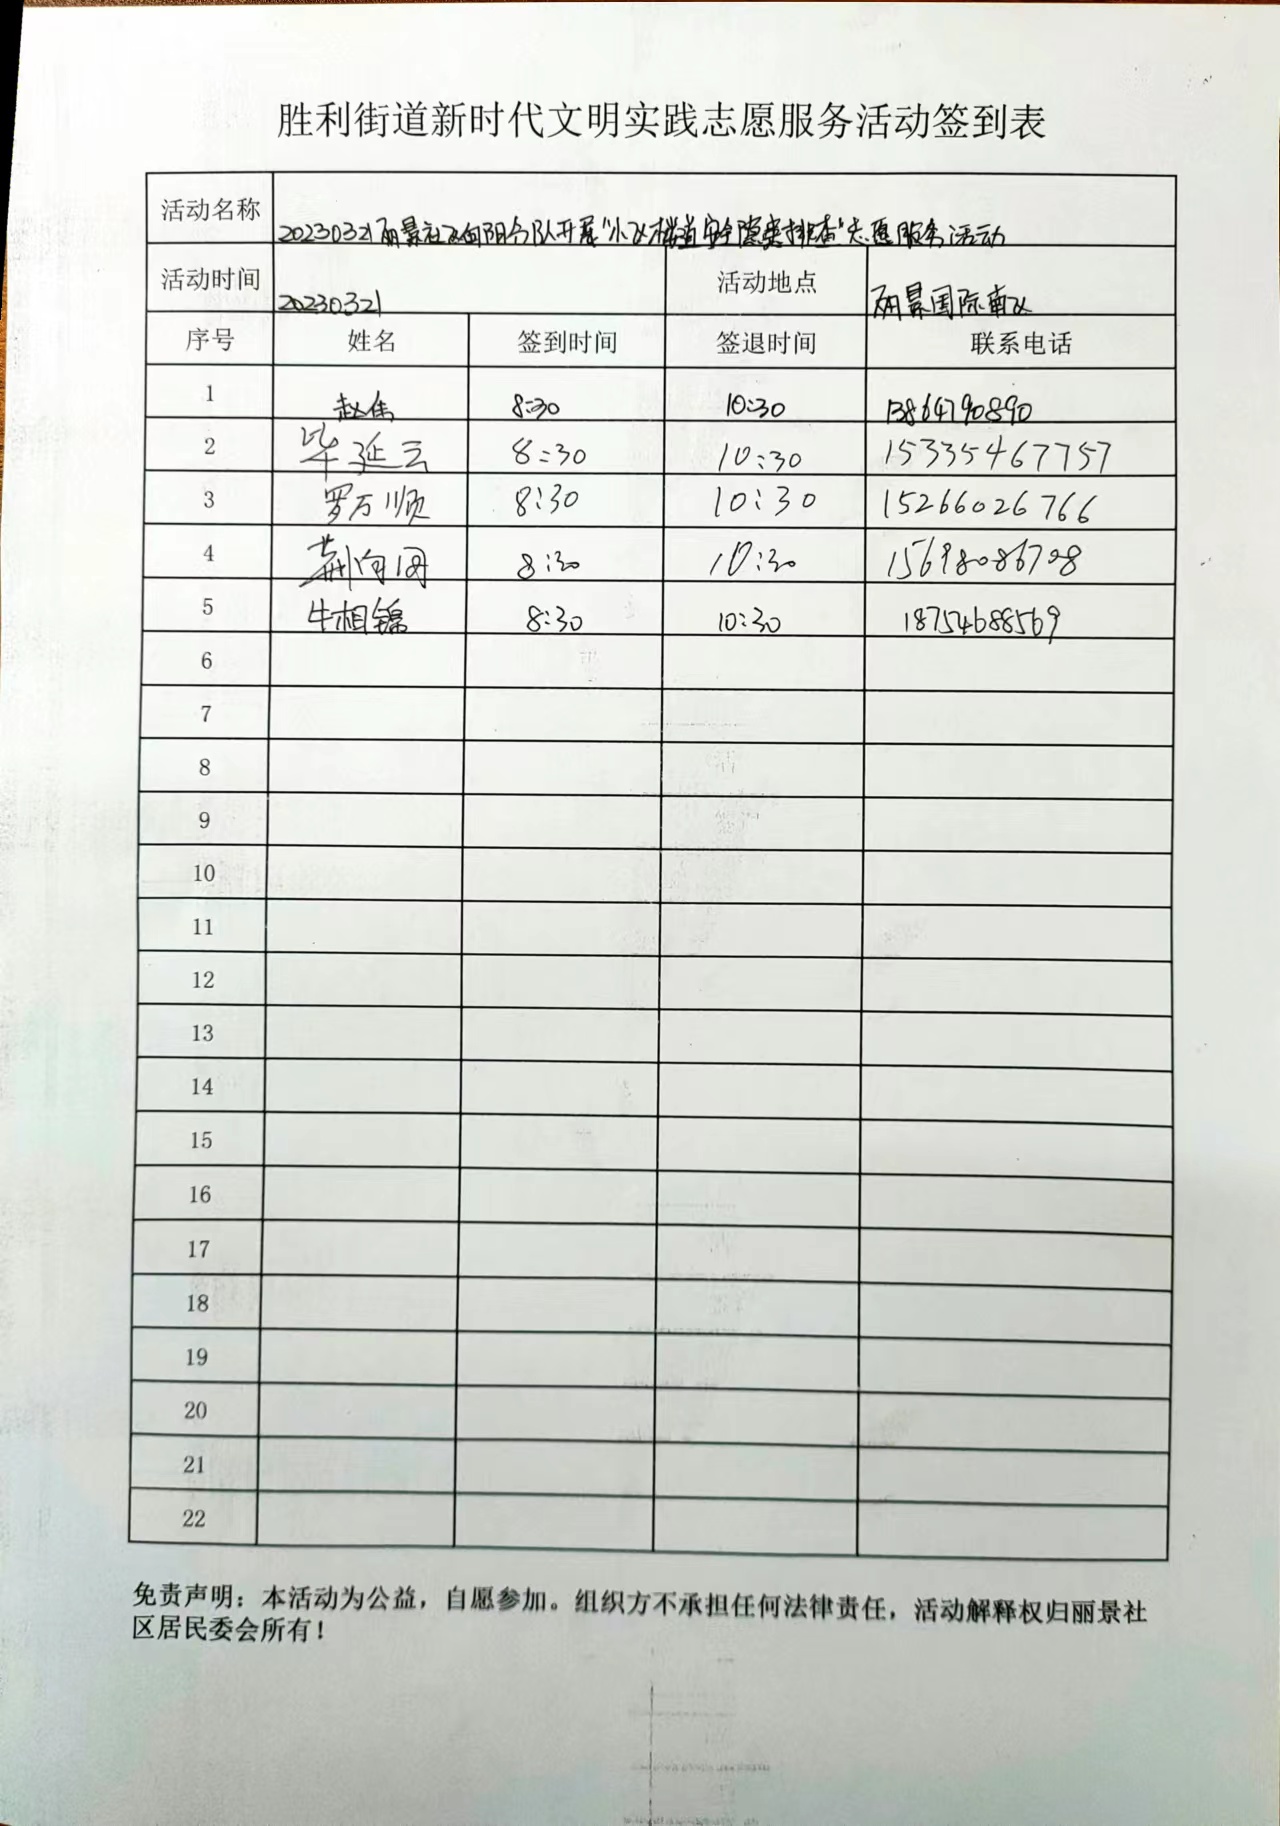 胜利街道新时代文明实践志愿服务活动签到表
活动名称 20230321丽景社区向阳分队开展“小区楼道安全隐患排查”志愿服务活动
活动时间 20230321 活动地点 丽景国际南区
序号 姓名 签到时间 签退时间 联系电话
1 赵伟 8:30 10:30 13864790890
2 毕延云 8:30 10:30 15335467757
3 罗万顺 8:30 10:30 15266026766
4 荆向阁 8:30 10:30 15698086708
5 牛相锦 8:30 10:30 18754688569
6
7
8
9
10
11
12
13
14
15
16
17
18
19
20
21
22
免责声明：本活动为公益，自愿参加。组织方不承担任何法律责任，活动解释权归丽景社
区居民委会所有！